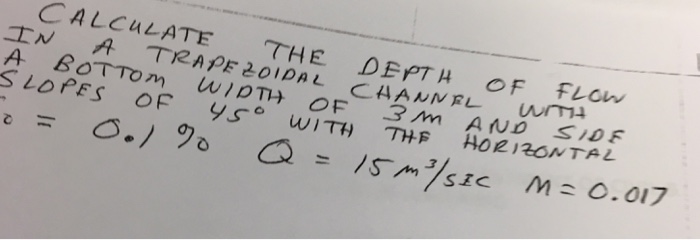 CALCULATE THE DEPTH OF FLOW
IN A TRAPEZOIDAL CHANNEL WITH
A BOTTOM WIDTH OF 3M AND SIDE
SLOPES OF 45° WITH THE HORIZONTAL
= 0.1% Q = 15 m³/SEC M = 0.017